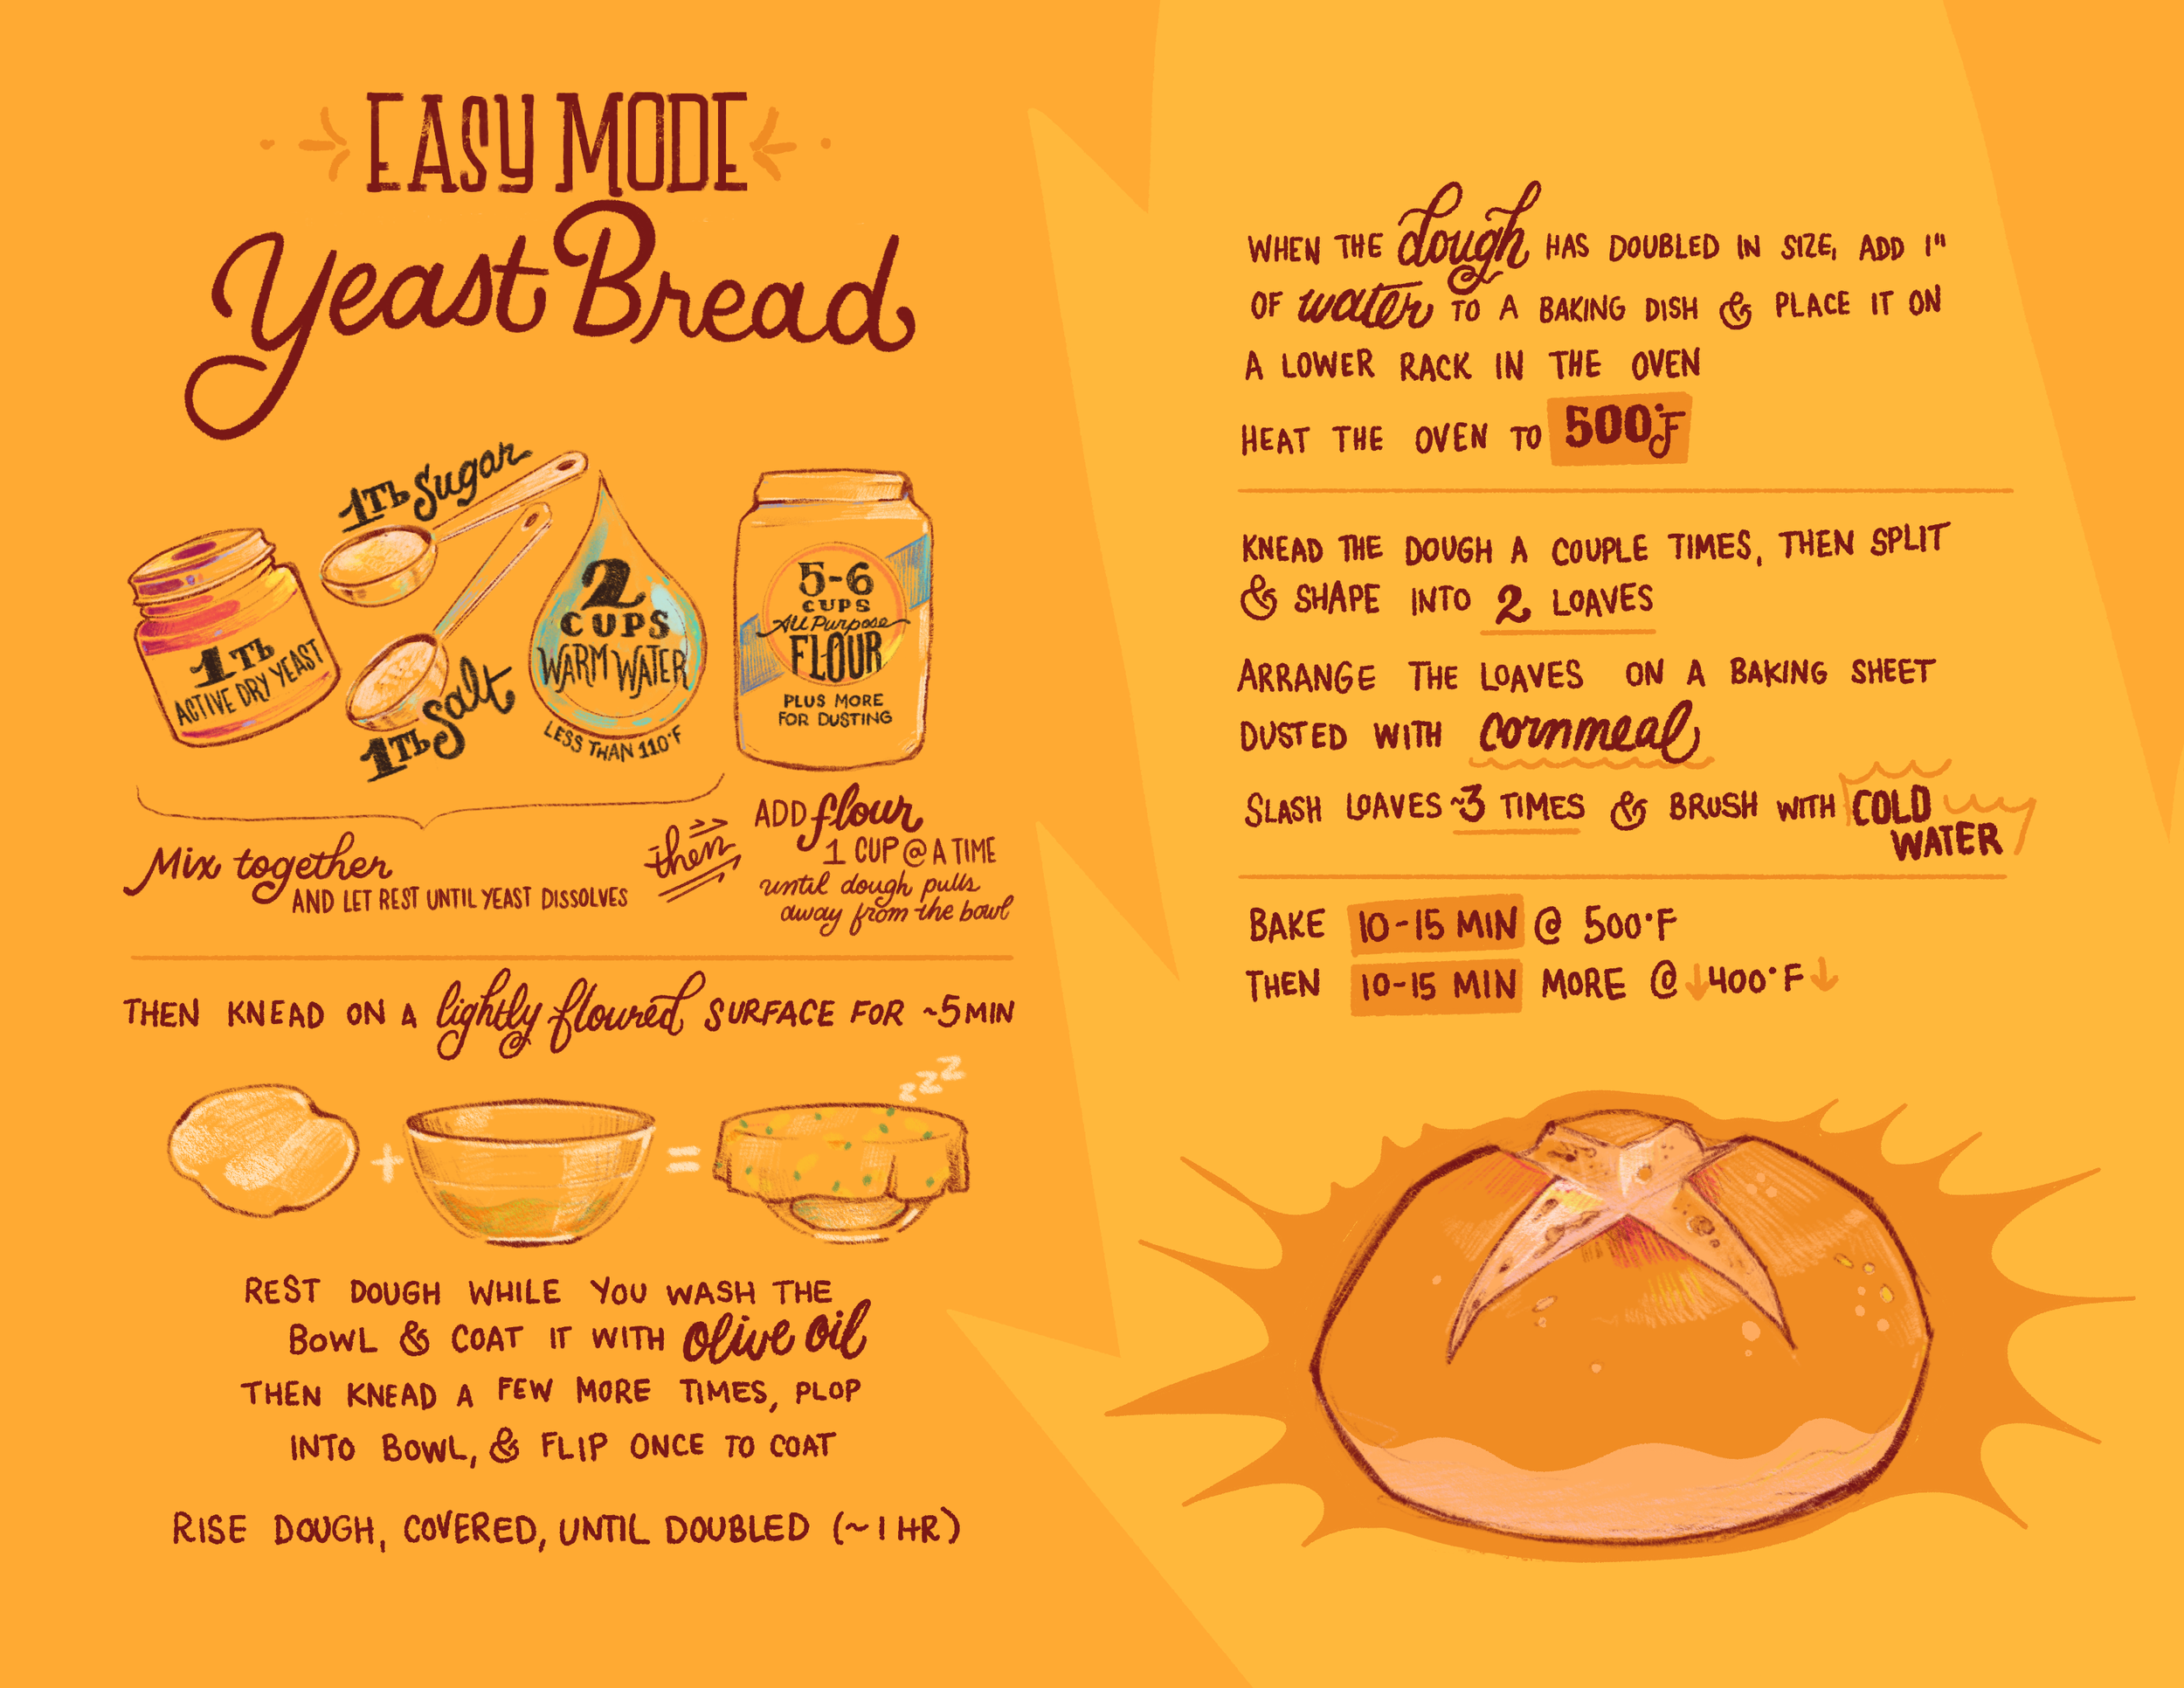 EASY MODE
Yeast Bread
1Tb Sugar
1Tb
ACTIVE DRY YEAST
1Tb Salt
2
CUPS
WARM WATER
LESS THAN 110°F
5-6
CUPS
All Purpose
FLOUR
PLUS MORE
FOR DUSTING
Mix together
AND LET REST UNTIL YEAST DISSOLVES
then
ADD flour
1 CUP @ A TIME
until dough pulls
away from the bowl
THEN KNEAD ON A lightly floured SURFACE FOR ~5 MIN
zzz
+ =
REST DOUGH WHILE YOU WASH THE
BOWL & COAT IT WITH olive oil
THEN KNEAD A FEW MORE TIMES, PLOP
INTO BOWL, & FLIP ONCE TO COAT
RISE DOUGH, COVERED, UNTIL DOUBLED (~1 HR)
WHEN THE dough HAS DOUBLED IN SIZE, ADD 1"
OF water TO A BAKING DISH & PLACE IT ON
A LOWER RACK IN THE OVEN
HEAT THE OVEN TO 500°F
KNEAD THE DOUGH A COUPLE TIMES, THEN SPLIT
& SHAPE INTO 2 LOAVES
ARRANGE THE LOAVES ON A BAKING SHEET
DUSTED WITH cornmeal
SLASH LOAVES ~3 TIMES & BRUSH WITH COLD
WATER
BAKE 10-15 MIN @ 500°F
THEN 10-15 MIN MORE @ ↓400°F↓